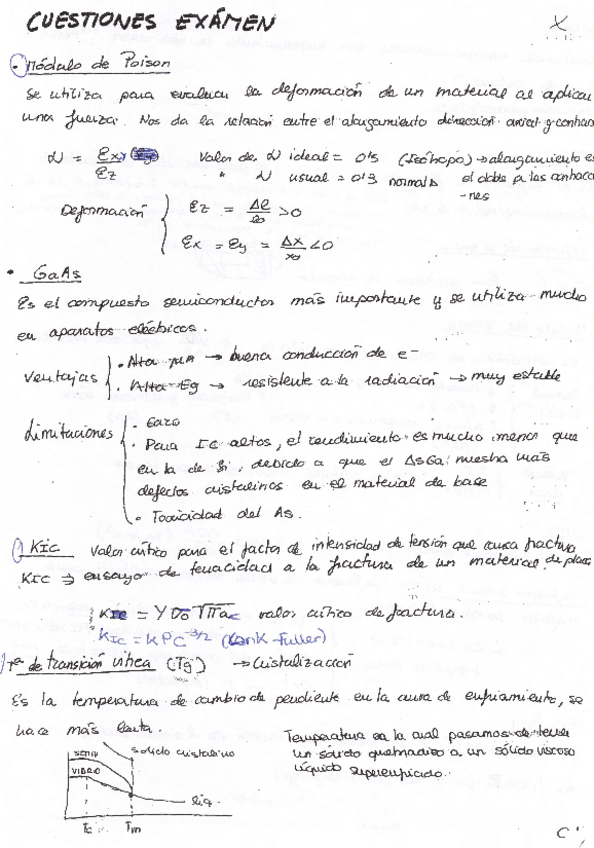 CUESTIONES EXÁMEN
• Módulo de Poison
Se utiliza para evaluar la deformación de un material al aplicar
una fuerza. Nos da la relación entre el alargamiento dirección axial y contrac
= εx / εz Valor de ideal = 0'5 (Isótropo) → alargamiento es
" usual = 0'3 normal el doble a las contracc
-nes
Deformación { εz = Δl/lo > 0
εx = εy = Δx/xo < 0
• GaAs
Es el compuesto semiconductor más importante y se utiliza mucho
en aparatos eléctricos.
Ventajas { • Alta → buena conducción de e-
• Alta Eg → resistente a la radiación → muy estable
Limitaciones { • Caro
• Para IC altos, el rendimiento es mucho menor que
en la de Si, debido a que el AsGa muestra más
defectos cristalinos en el material de base
• Toxicidad del As.
KIC Valor crítico para el factor de intensidad de tensión que causa fractura
KIC ⇒ ensayo de tenacidad a la fractura de un material de placa
KIC = Y σo √πac valor crítico de fractura.
KIC = K P C^-3/2
Tª de transición vítrea (Tg) → Cristalización
Es la temperatura de cambio de pendiente en la curva de enfriamiento, se
hace más lenta.
Temperatura en la cual pasamos de tener
un sólido quebradizo a un sólido viscoso
líquido superenfriado.
sólido cristalino
VIDRIO
liq.
Tm